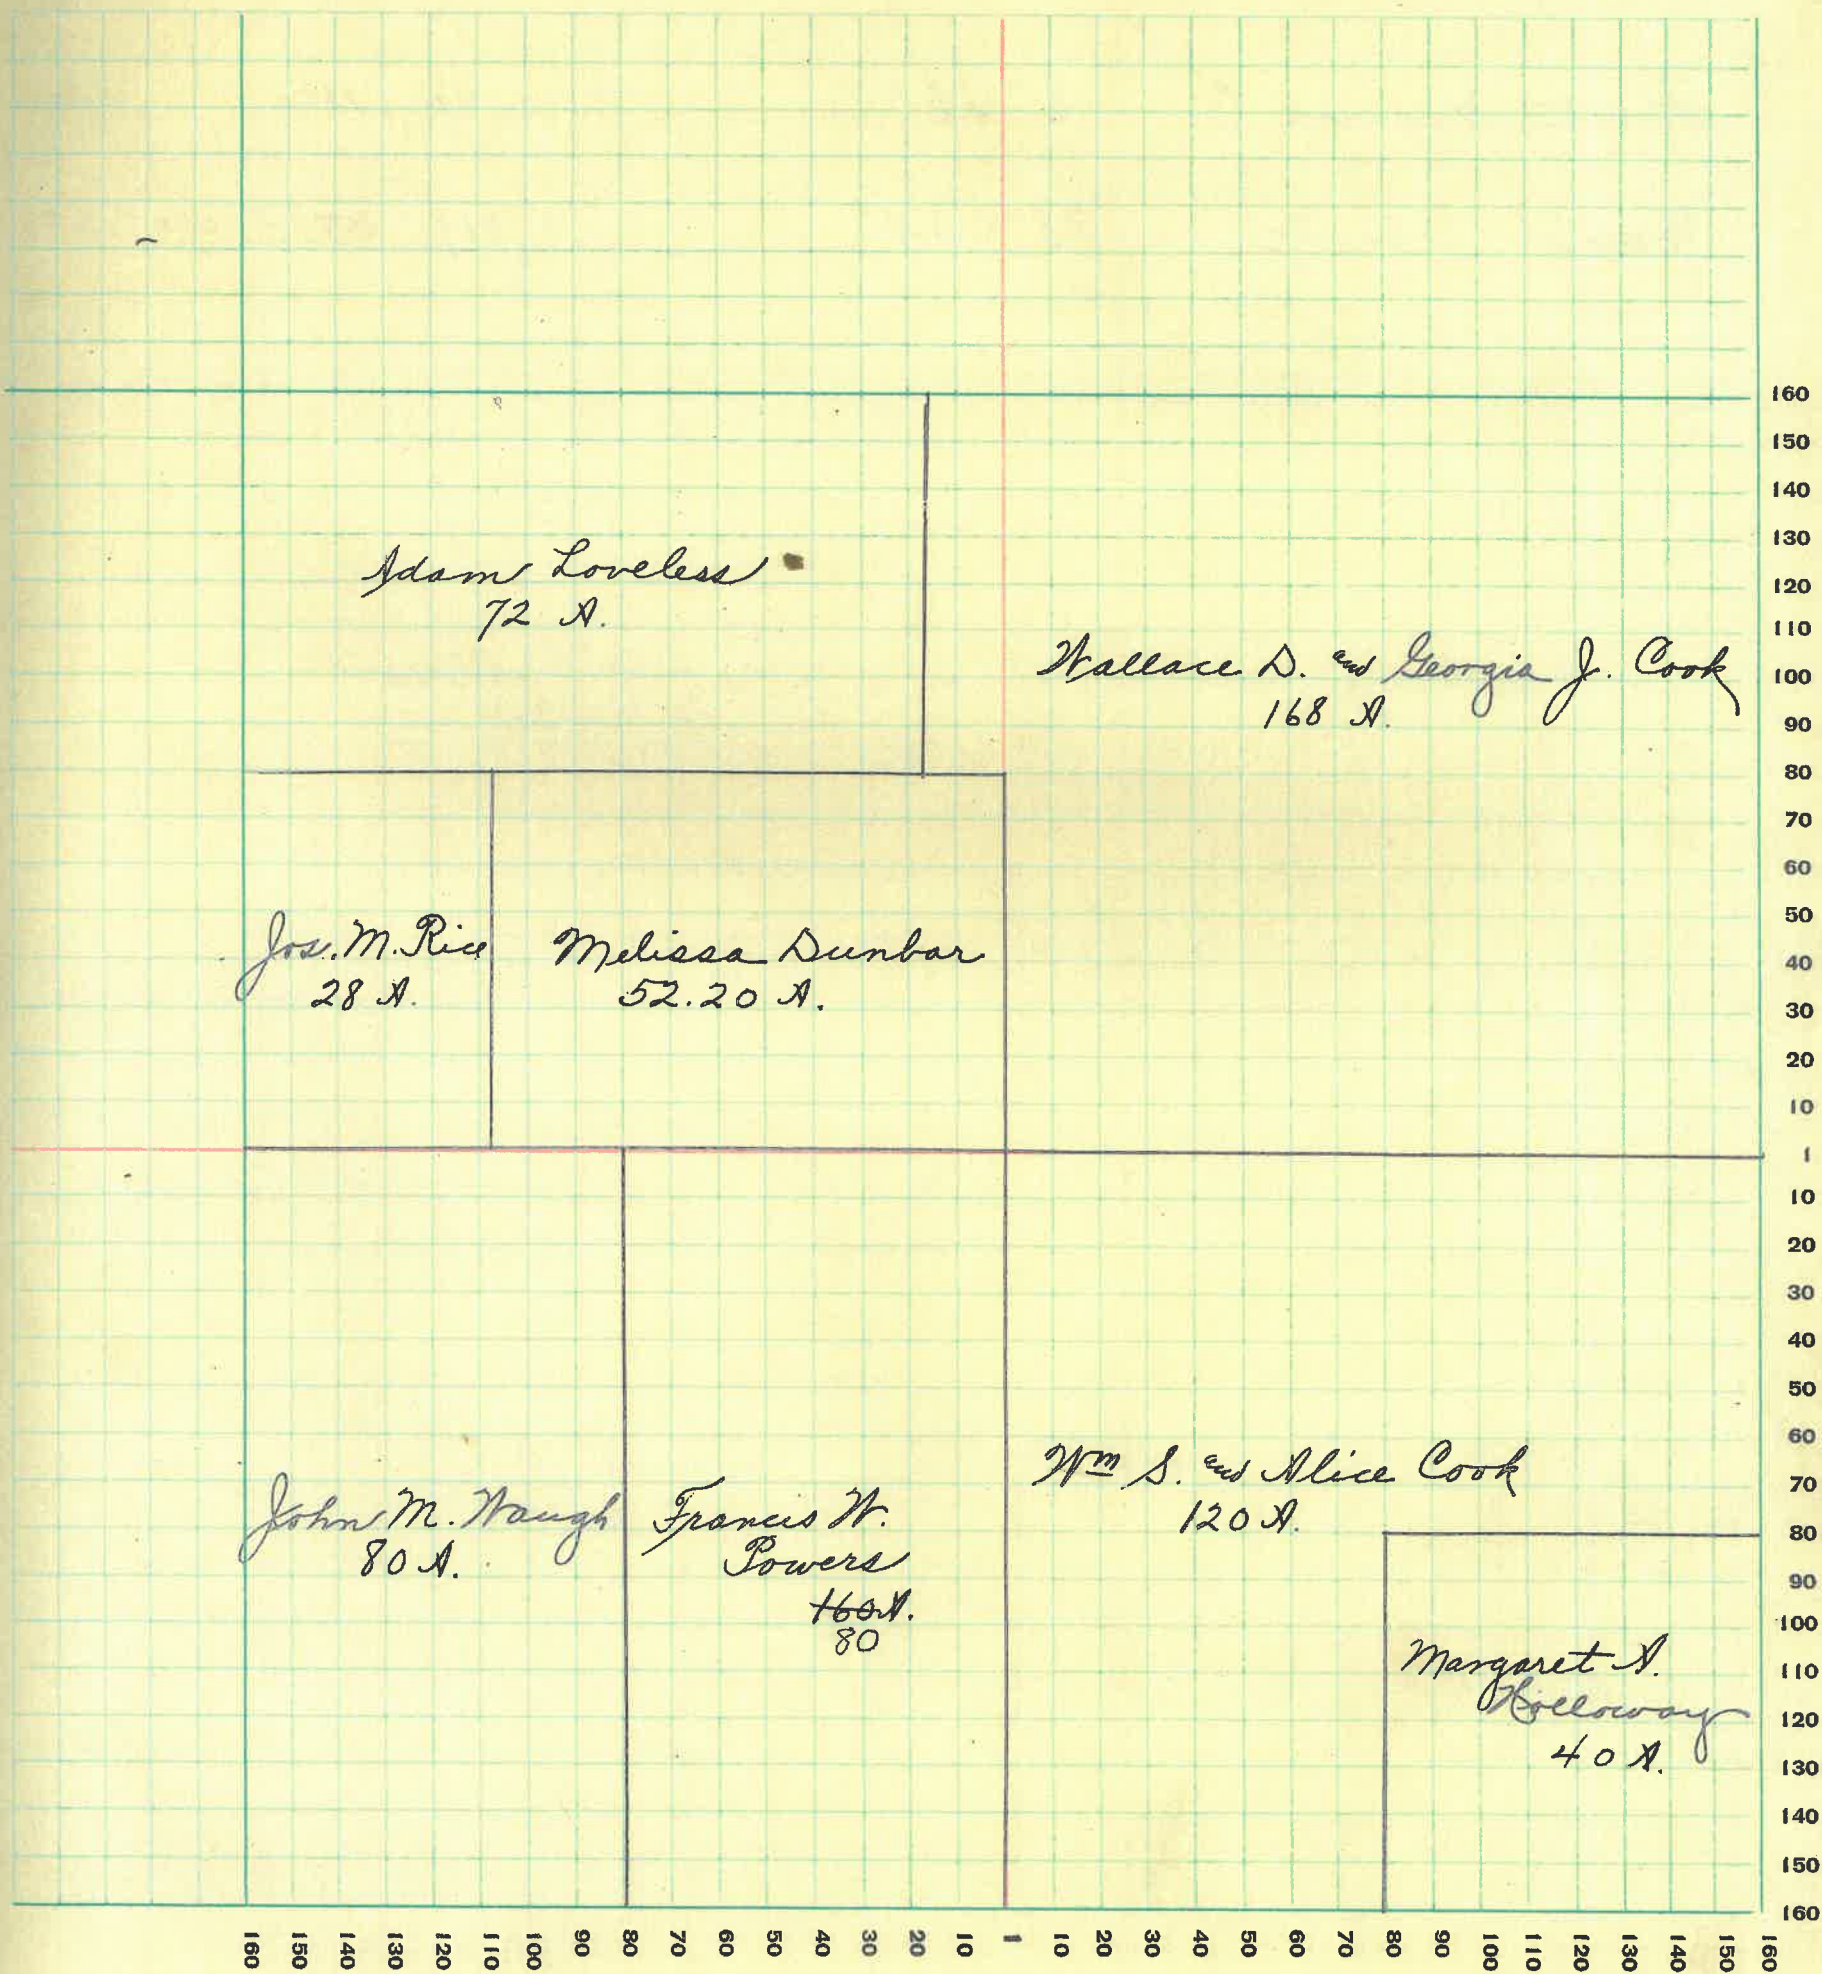 Adam Loveless
72 A.
Wallace D. and Georgia J. Cook
168 A.
Jos. M. Rice
28 A.
Melissa Dunbar
52.20 A.
John M. Waugh
80 A.
Francis W.
Powers
160 A.
80
Wm S. and Alice Cook
120 A.
Margaret A.
Holloway
40 A.
160
150
140
130
120
110
100
90
80
70
60
50
40
30
20
10
1
10
20
30
40
50
60
70
80
90
100
110
120
130
140
150
160
160 150 140 130 120 110 100 90 80 70 60 50 40 30 20 10 1 10 20 30 40 50 60 70 80 90 100 110 120 130 140 150 160